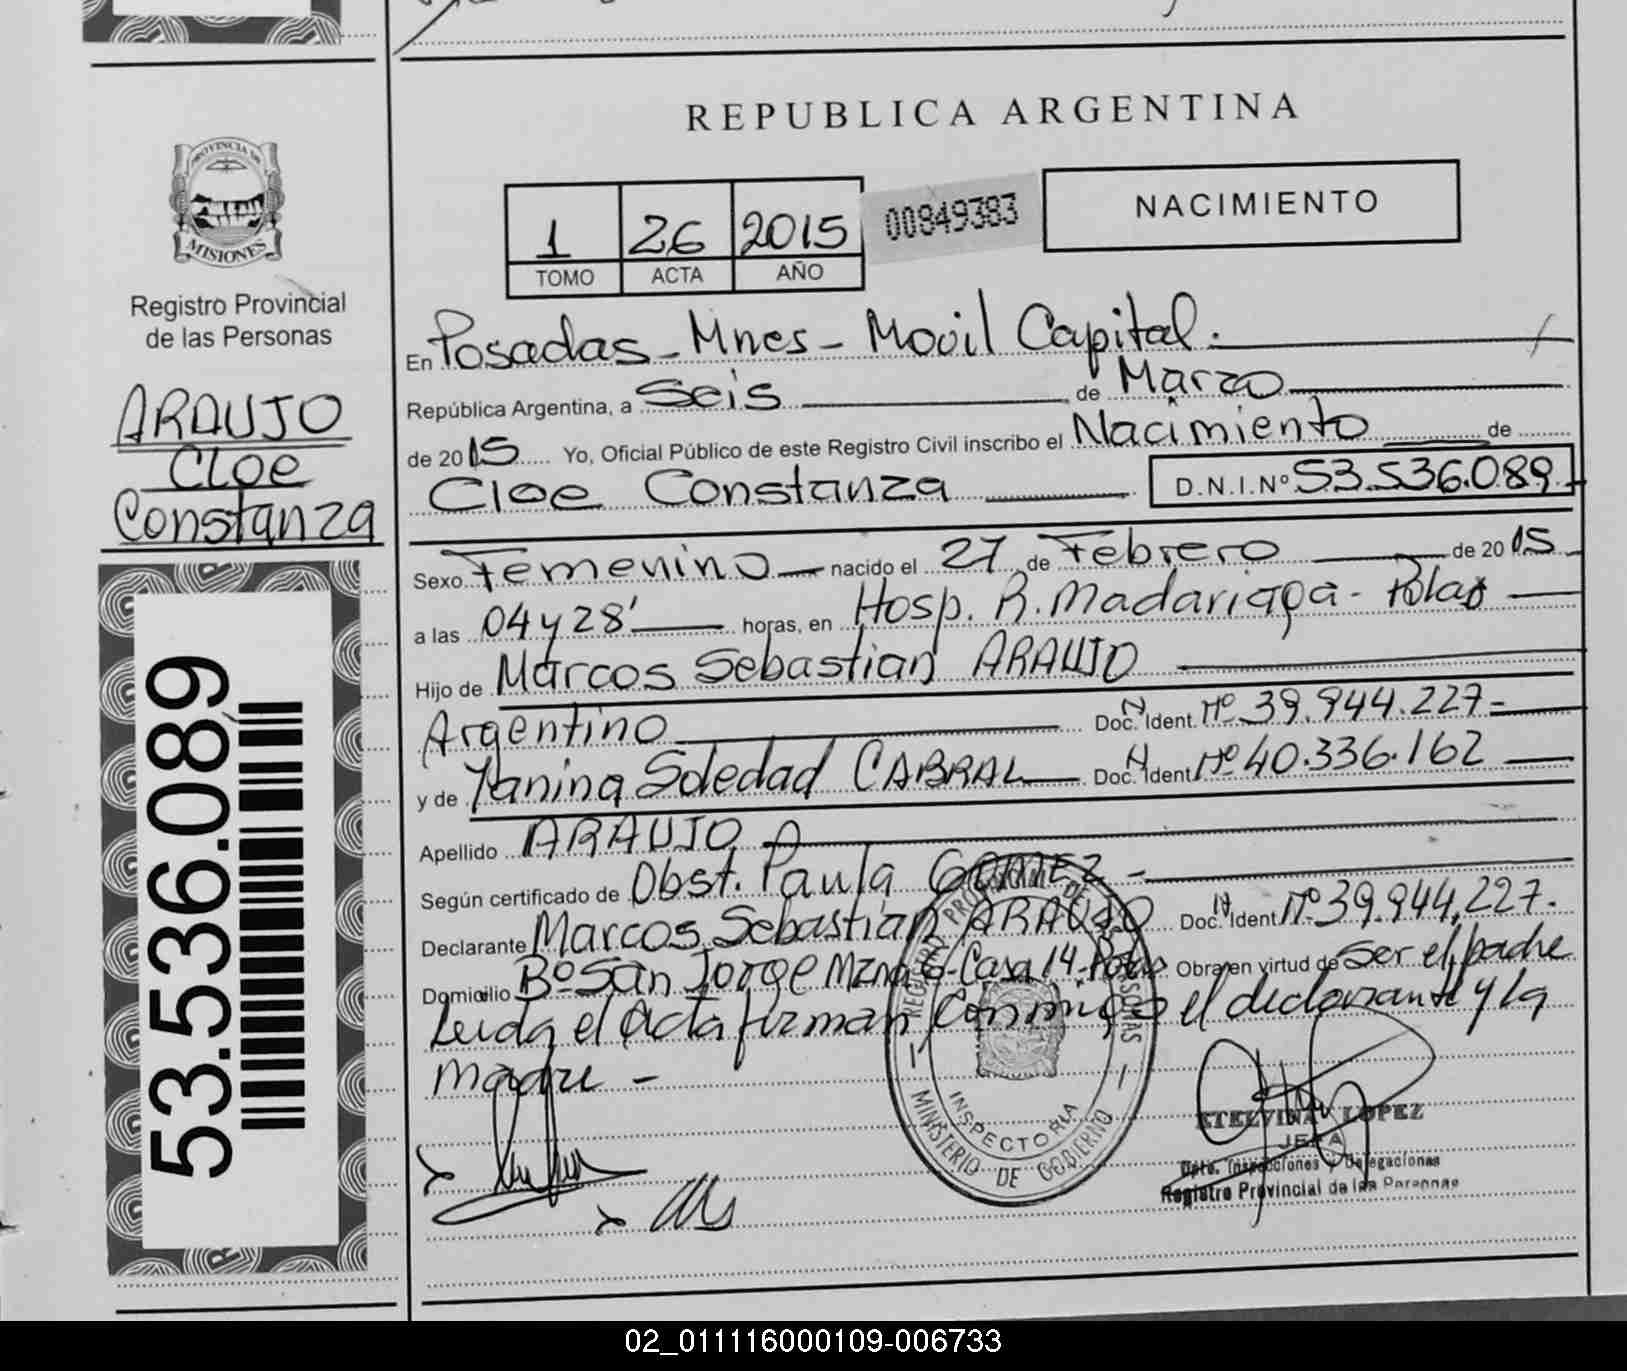 REPUBLICA ARGENTINA
PROVINCIA DE
MISIONES
Registro Provincial
de las Personas
ARAUJO
Cloe
Constanza
53.536.089
1 26 2015
TOMO ACTA AÑO
00849383
NACIMIENTO
En Posadas - Mnes - Movil Capital.
República Argentina, a Seis de Marzo
de 2015 Yo, Oficial Público de este Registro Civil inscribo el Nacimiento de
Cloe Constanza D.N.I.Nº 53.536.089
Sexo Femenino nacido el 27 de Febrero de 2015
a las 04 y 28' horas, en Hosp. R. Madariaga - Pdas
Hijo de Marcos Sebastian ARAUJO
Argentino Doc. N. Ident. Nº 39.944.227
y de Yanina Soledad CABRAL Doc. N. Ident. Nº 40.336.162
Apellido ARAUJO
Según certificado de Obst. Paula GOMEZ -
Declarante Marcos Sebastian ARAUJO Doc. N. Ident. Nº 39.944.227.
Domicilio Bº San Jorge Mzna 6 - Casa 14 - Pdas Obra en virtud de ser el padre
Leida el Acta firman Conmigo el declarante y la
madre -
REGISTRO PROVINCIAL DE LAS PERSONAS
INSPECTORIA
MINISTERIO DE GOBIERNO
ETELVINA LOPEZ
JEFA
Dpto. Inspecciones y Delegaciones
Registro Provincial de las Personas
02_011116000109-006733